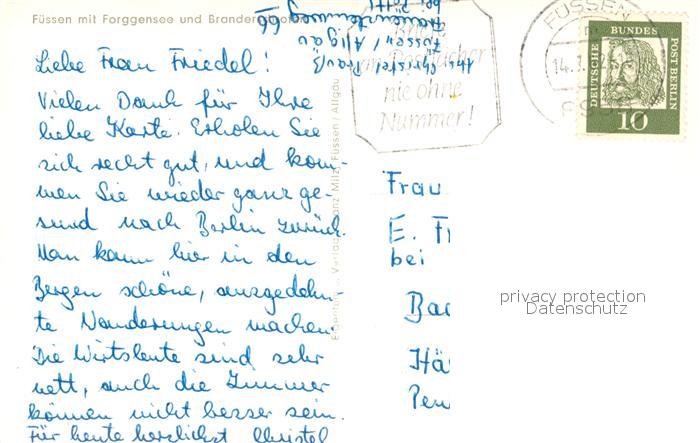 Füssen mit Forggensee und Brandenschrofen
Liebe Frau Friedel!
Vielen Dank für Ihre
liebe Karte. Erholen Sie
sich recht gut, und kom-
men Sie wieder ganz ge-
sund nach Berlin zurück.
Man kann hier in den
Bergen schöne, ausgedehn-
te Wanderungen machen.
Die Wirtsleute sind sehr
nett, auch die Zimmer
können nicht besser sein.
Für heute herzlichst Christel
Füssen / Allgäu
Füssen / Allgäu
nie ohne
Nummer!
FÜSSEN
DEUTSCHE BUNDESPOST BERLIN
10
Frau
E. Fr
bei
Bad
Hä
Pen
privacy protection
Datenschutz